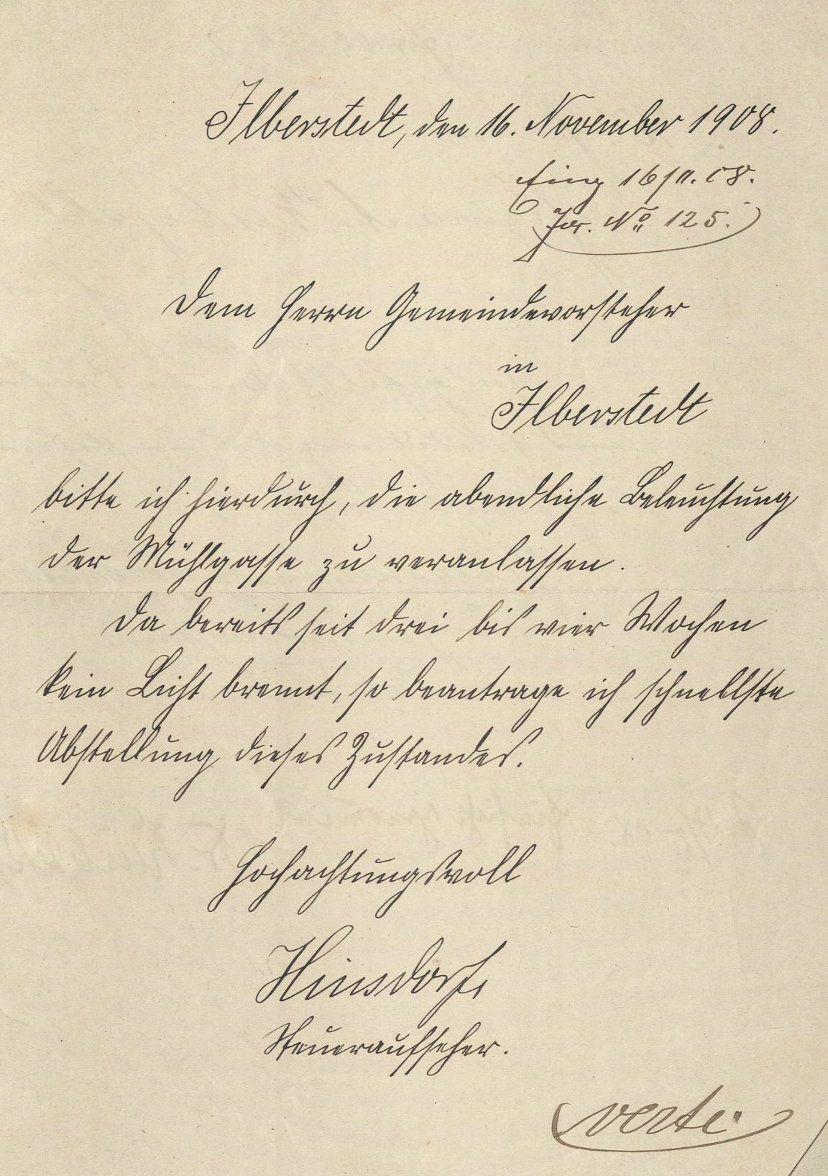 Ilberstedt, den 16. November 1908.
Eing 16/11.08.
Jor. No 125.
Dem Herrn Gemeindevorsteher
in
Ilberstedt
bitte ich hierdurch, die abendliche Beleuchtung
der Mühlgasse zu veranlassen.
Da bereits seit drei bis vier Wochen
kein Licht brennt, so beantrage ich schnellste
Abstellung dieses Zustandes.
Hochachtungsvoll
Hinsdorf,
Steueraufseher.
verte.